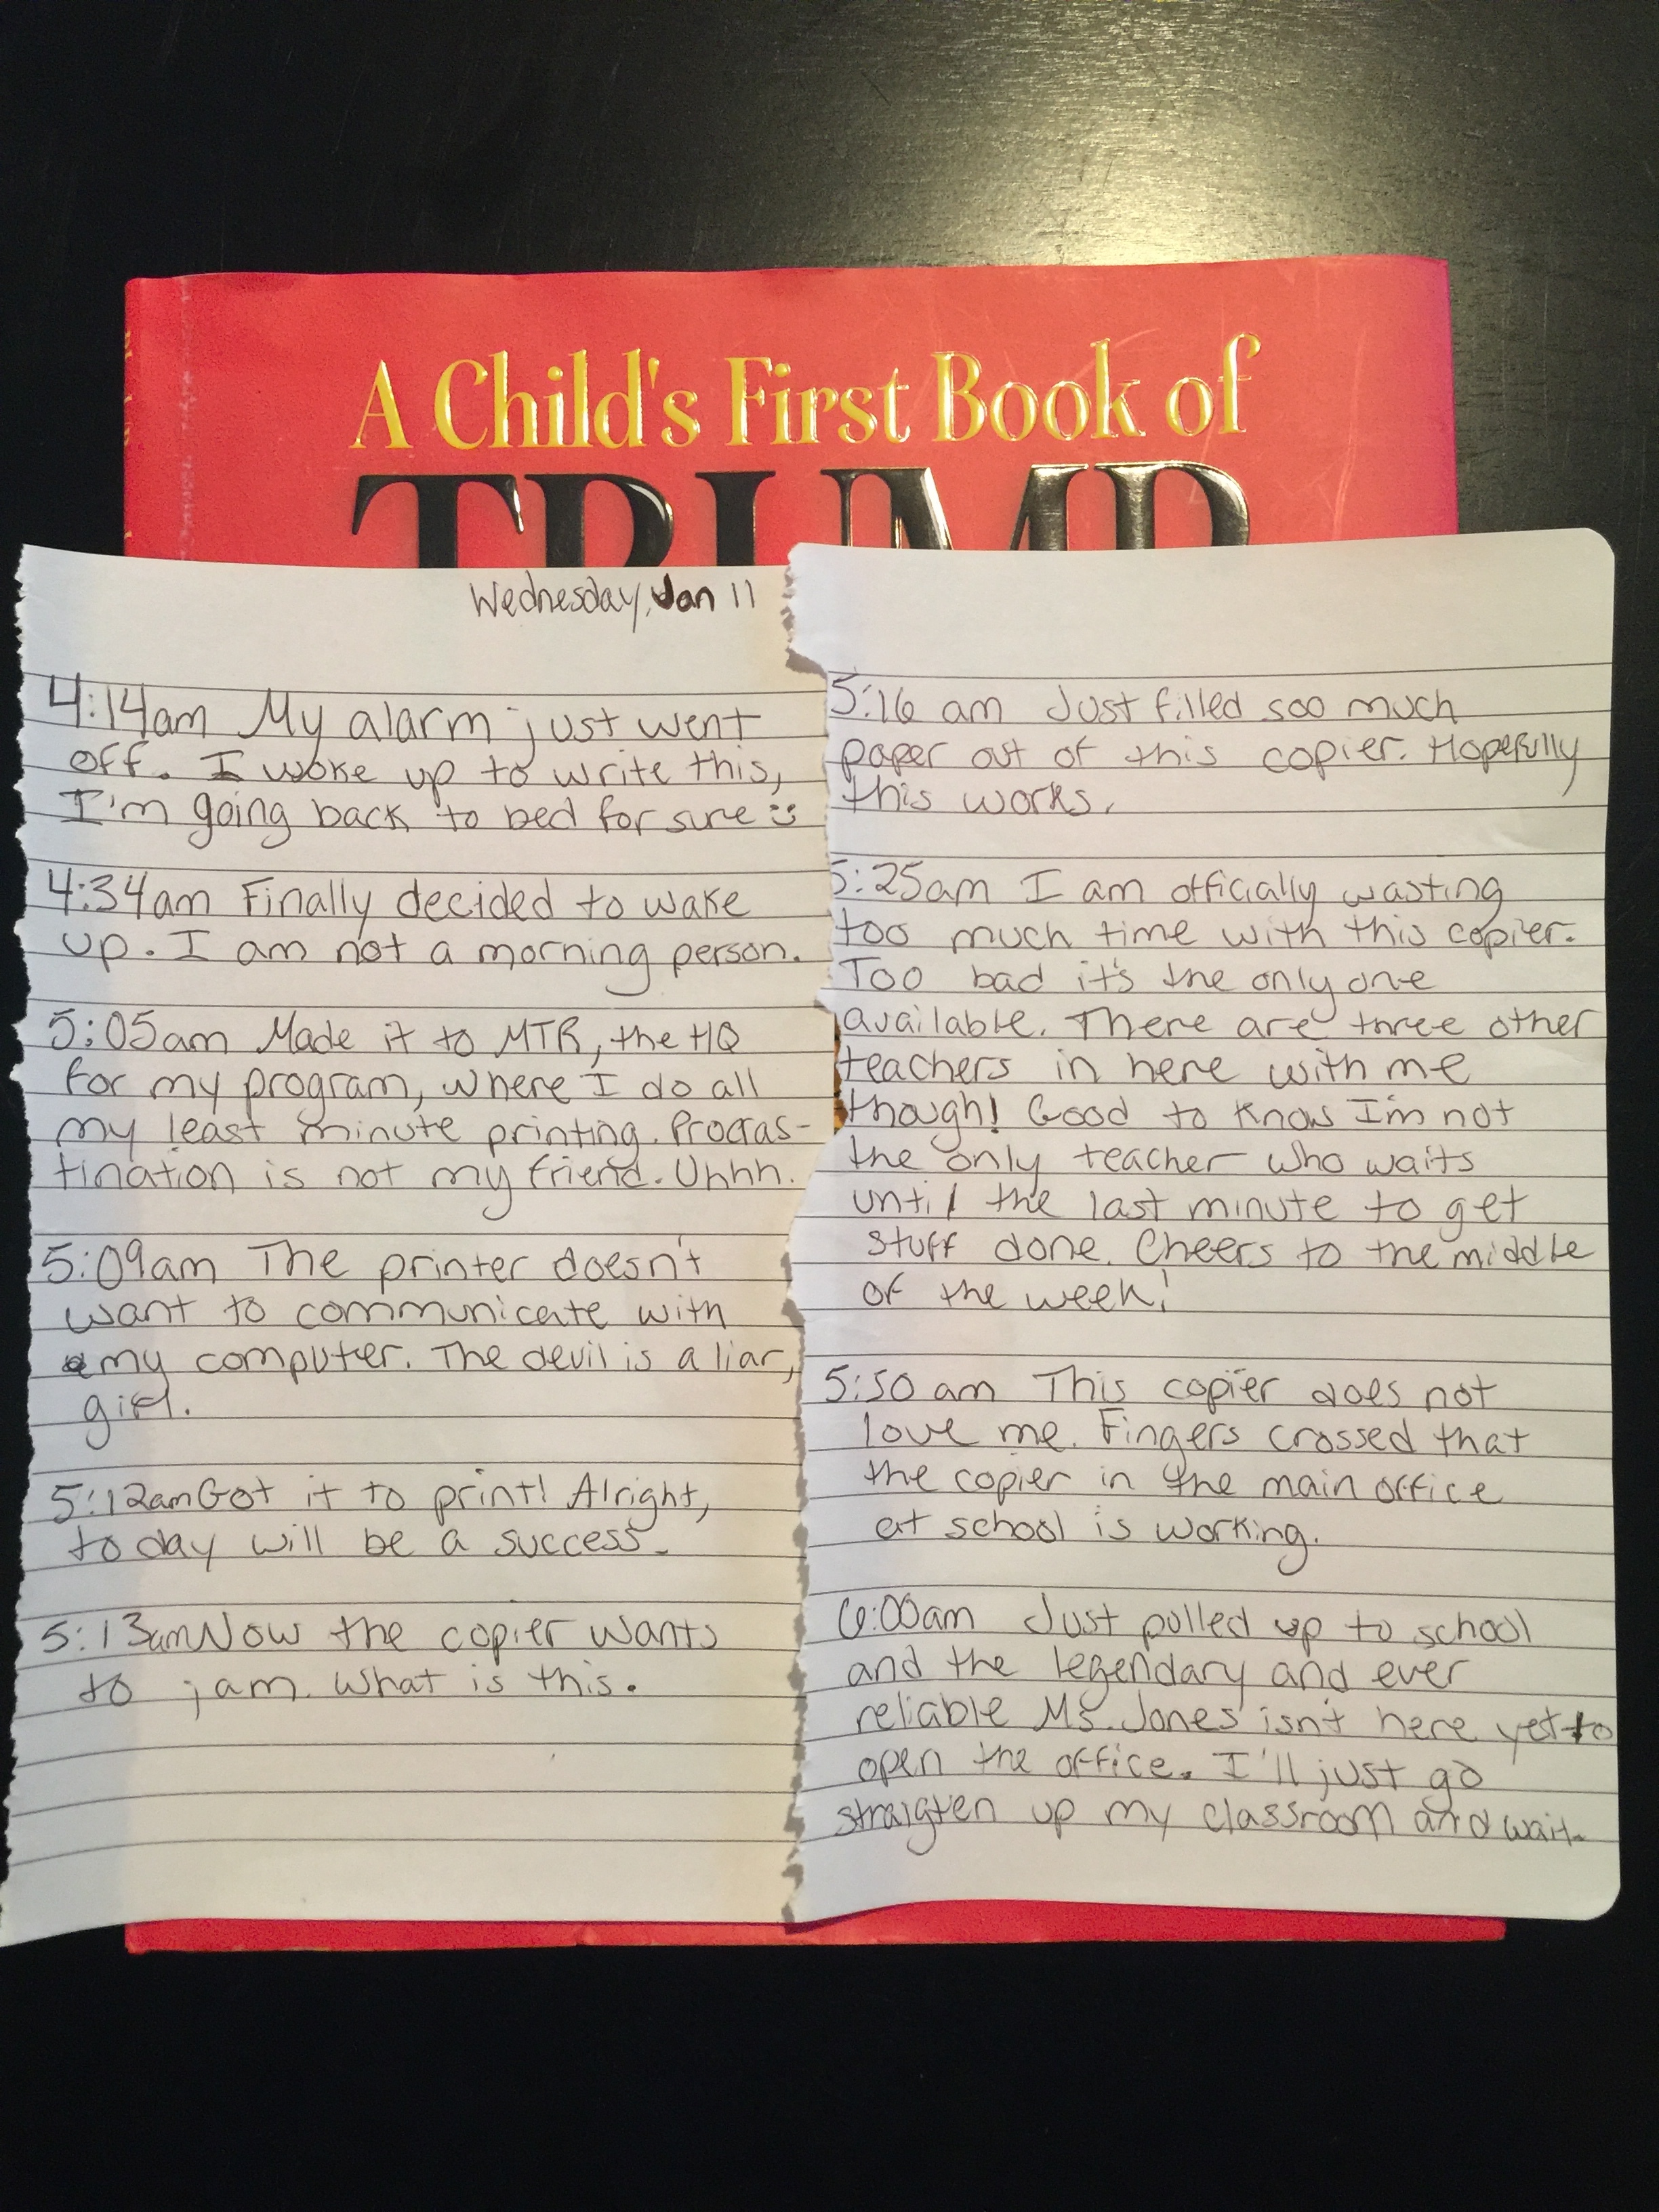 A Child's First Book of
TRUMP
Wednesday, Jan 11
4:14am My alarm just went
off. I woke up to write this,
I'm going back to bed for sure :)
4:34am Finally decided to wake
up. I am not a morning person.
5:05am Made it to MTR, the HQ
for my program, where I do all
my least minute printing. Procras-
tination is not my friend. Uhhh.
5:09am The printer doesn't
want to communicate with
my computer. The devil is a liar,
girl.
5:12am Got it to print! Alright,
today will be a success.
5:13am Now the copier wants
to jam. What is this.
5:16 am Just filled soo much
paper out of this copier. Hopefully
this works.
5:25am I am officially wasting
too much time with this copier.
Too bad it's the only one
available. There are three other
teachers in here with me
though! Good to know I'm not
the only teacher who waits
until the last minute to get
stuff done. Cheers to the middle
of the week!
5:50 am This copier does not
love me. Fingers crossed that
the copier in the main office
at school is working.
6:00am Just pulled up to school
and the legendary and ever
reliable Ms. Jones isn't here yet to
open the office. I'll just go
straigten up my classroom and wait.